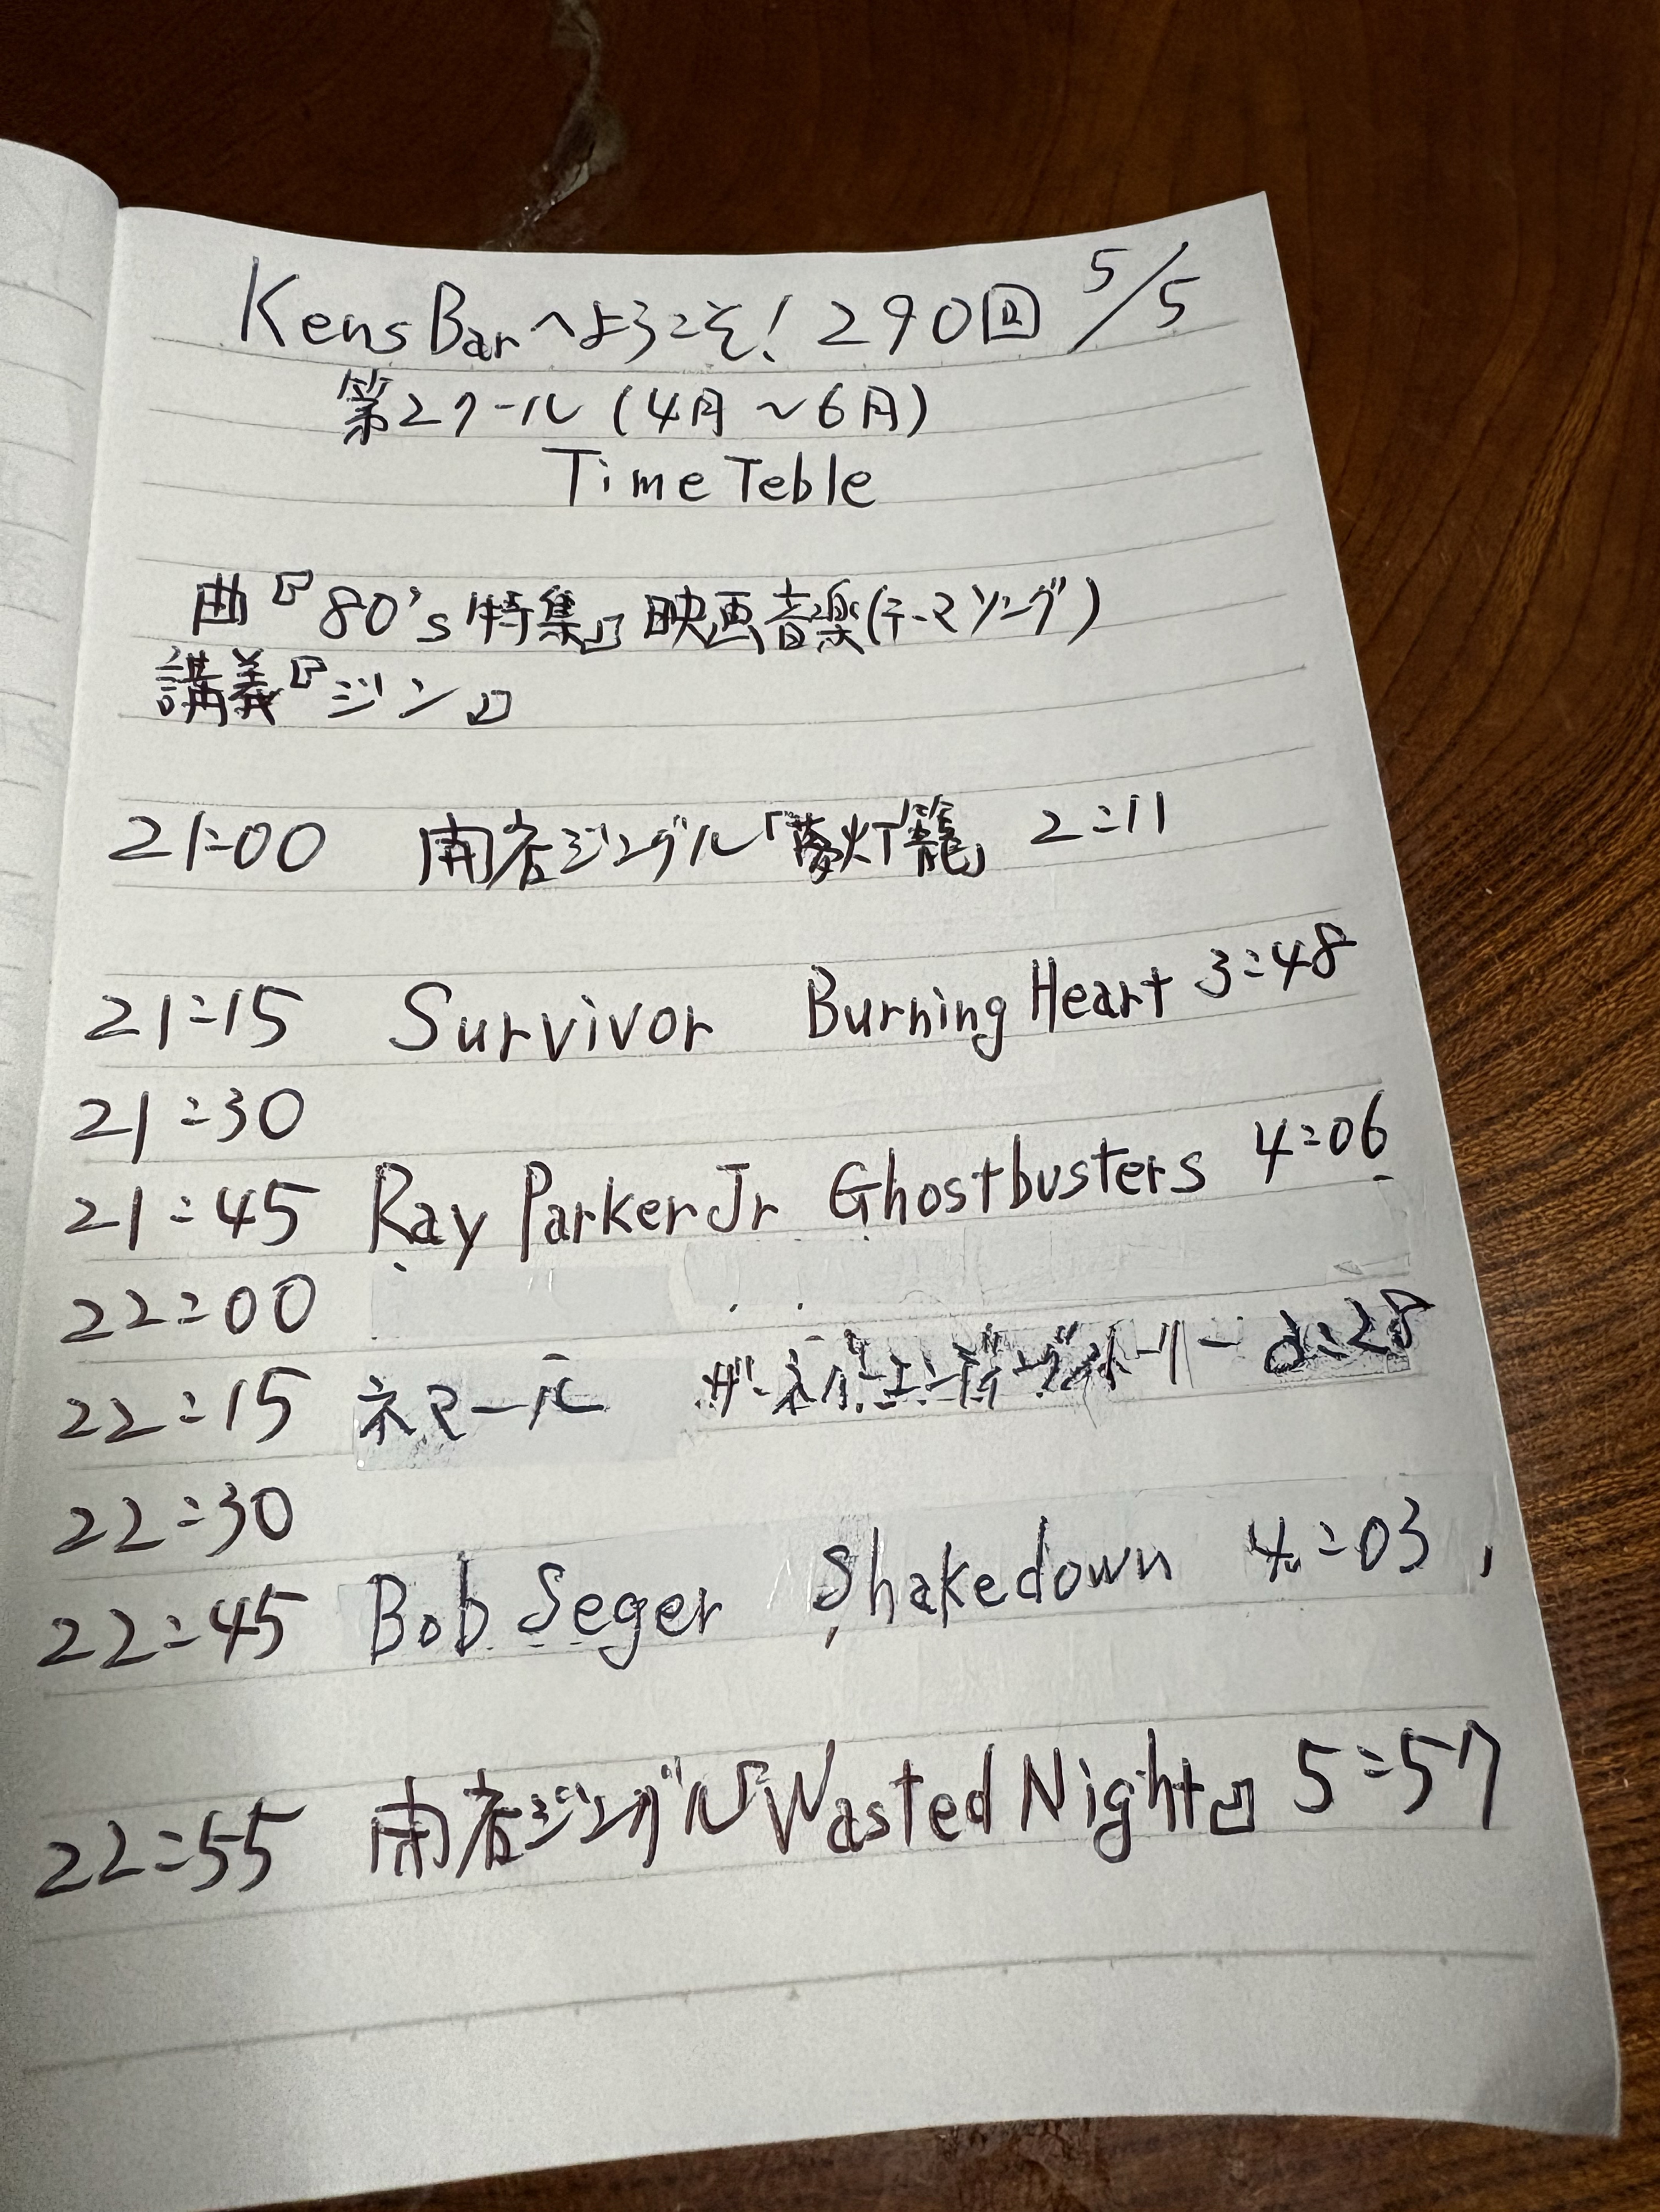 Kens Barへようこそ! 290回 5/5
第2クール (4月~6月)
Time Teble
曲『80's特集』映画音楽(テーマソング)
講義『ジン』
21:00 開店ジングル「夢灯籠」 2:11
21:15 Survivor Burning Heart 3:48
21:30
21:45 Ray Parker Jr Ghostbusters 4:06
22:00
22:15 ネマール ザ・ネバーエンディングストーリー :28
22:30
22:45 Bob Seger Shakedown 4:03
22:55 閉店ジングル『Wasted Night』 5:57